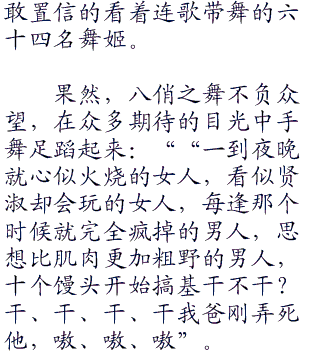 敢置信的看着连歌带舞的六
十四名舞姬。
果然，八俏之舞不负众
望，在众多期待的目光中手
舞足蹈起来：““一到夜晚
就心似火烧的女人，看似贤
淑却会玩的女人，每逢那个
时候就完全疯掉的男人，思
想比肌肉更加粗野的男人，
十个馒头开始搞基干不干？
干、干、干、干我爸刚弄死
他，嗷、嗷、嗷”。